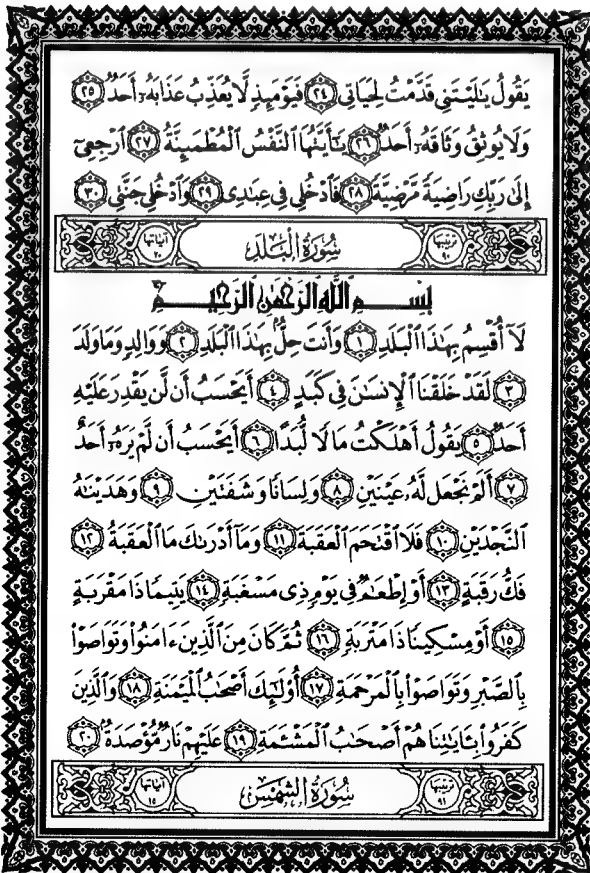 يَقُولُ يَٰلَيْتَنِي قَدَّمْتُ لِحَيَاتِي ٢٤ فَيَوْمَئِذٍ لَّا يُعَذِّبُ عَذَابَهُۥٓ أَحَدٌ ٢٥
وَلَا يُوثِقُ وَثَاقَهُۥٓ أَحَدٌ ٢٦ يَٰٓأَيَّتُهَا ٱلنَّفْسُ ٱلْمُطْمَئِنَّةُ ٢٧ ٱرْجِعِيٓ
إِلَىٰ رَبِّكِ رَاضِيَةً مَّرْضِيَّةً ٢٨ فَٱدْخُلِي فِي عِبَٰدِي ٢٩ وَٱدْخُلِي جَنَّتِي ٣٠
ترتيبها ٩٠ سُورَةُ الْبَلَدِ آياتها ٢٠
بِسْمِ ٱللَّهِ ٱلرَّحْمَٰنِ ٱلرَّحِيمِ
لَآ أُقْسِمُ بِهَٰذَا ٱلْبَلَدِ ١ وَأَنتَ حِلٌّۢ بِهَٰذَا ٱلْبَلَدِ ٢ وَوَالِدٍ وَمَا وَلَدَ
٣ لَقَدْ خَلَقْنَا ٱلْإِنسَٰنَ فِي كَبَدٍ ٤ أَيَحْسَبُ أَن لَّن يَقْدِرَ عَلَيْهِ
أَحَدٌ ٥ يَقُولُ أَهْلَكْتُ مَالًا لُّبَدًا ٦ أَيَحْسَبُ أَن لَّمْ يَرَهُۥٓ أَحَدٌ
٧ أَلَمْ نَجْعَل لَّهُۥ عَيْنَيْنِ ٨ وَلِسَانًا وَشَفَتَيْنِ ٩ وَهَدَيْنَٰهُ
ٱلنَّجْدَيْنِ ١٠ فَلَا ٱقْتَحَمَ ٱلْعَقَبَةَ ١١ وَمَآ أَدْرَىٰكَ مَا ٱلْعَقَبَةُ ١٢
فَكُّ رَقَبَةٍ ١٣ أَوْ إِطْعَٰمٌ فِي يَوْمٍ ذِي مَسْغَبَةٍ ١٤ يَتِيمًا ذَا مَقْرَبَةٍ
١٥ أَوْ مِسْكِينًا ذَا مَتْرَبَةٍ ١٦ ثُمَّ كَانَ مِنَ ٱلَّذِينَ ءَامَنُوا۟ وَتَوَاصَوْا۟
بِٱلصَّبْرِ وَتَوَاصَوْا۟ بِٱلْمَرْحَمَةِ ١٧ أُو۟لَٰٓئِكَ أَصْحَٰبُ ٱلْمَيْمَنَةِ ١٨ وَٱلَّذِينَ
كَفَرُوا۟ بِـَٔايَٰتِنَا هُمْ أَصْحَٰبُ ٱلْمَشْـَٔمَةِ ١٩ عَلَيْهِمْ نَارٌ مُّؤْصَدَةٌۢ ٢٠
ترتيبها ٩١ سُورَةُ الشَّمْسِ آياتها ١٥